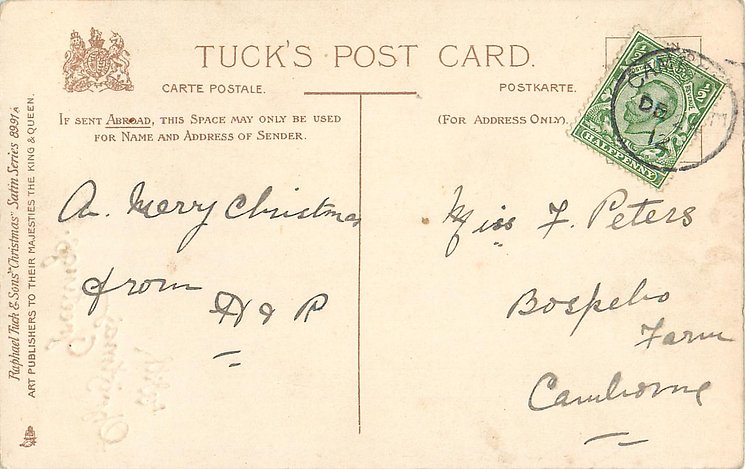 TUCK'S POST CARD.
CARTE POSTALE.
POSTKARTE.
IF SENT ABROAD, THIS SPACE MAY ONLY BE USED
FOR NAME AND ADDRESS OF SENDER.
(FOR ADDRESS ONLY).
Raphael Tuck & Sons' "Christmas" Satin Series 8991A
ART PUBLISHERS TO THEIR MAJESTIES THE KING & QUEEN.
A Merry Christmas
from
H & P
Miss F. Peters
Farm
Camborne
1/2
1/2
HALFPENNY
DE
12